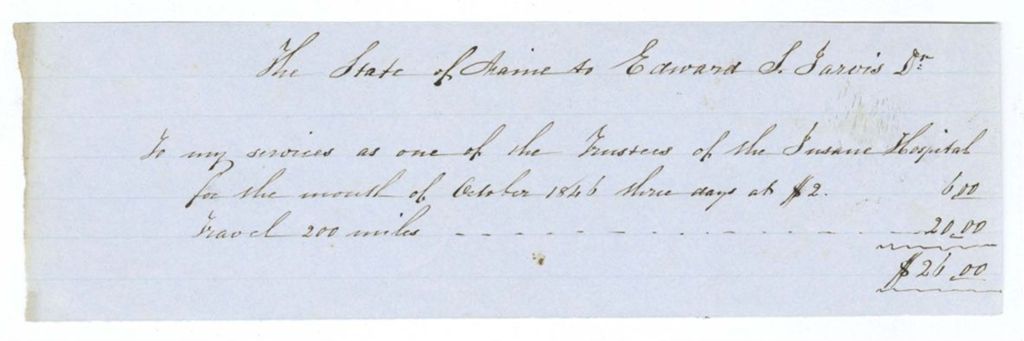 The State of Maine to Edward S. Jarvis Dr
To my services as one of the Trustees of the Insane Hospital
for the month of October 1846 three days at $2. 6.00
Travel 200 miles - - - - - - - - - - - - - 20.00
$26.00